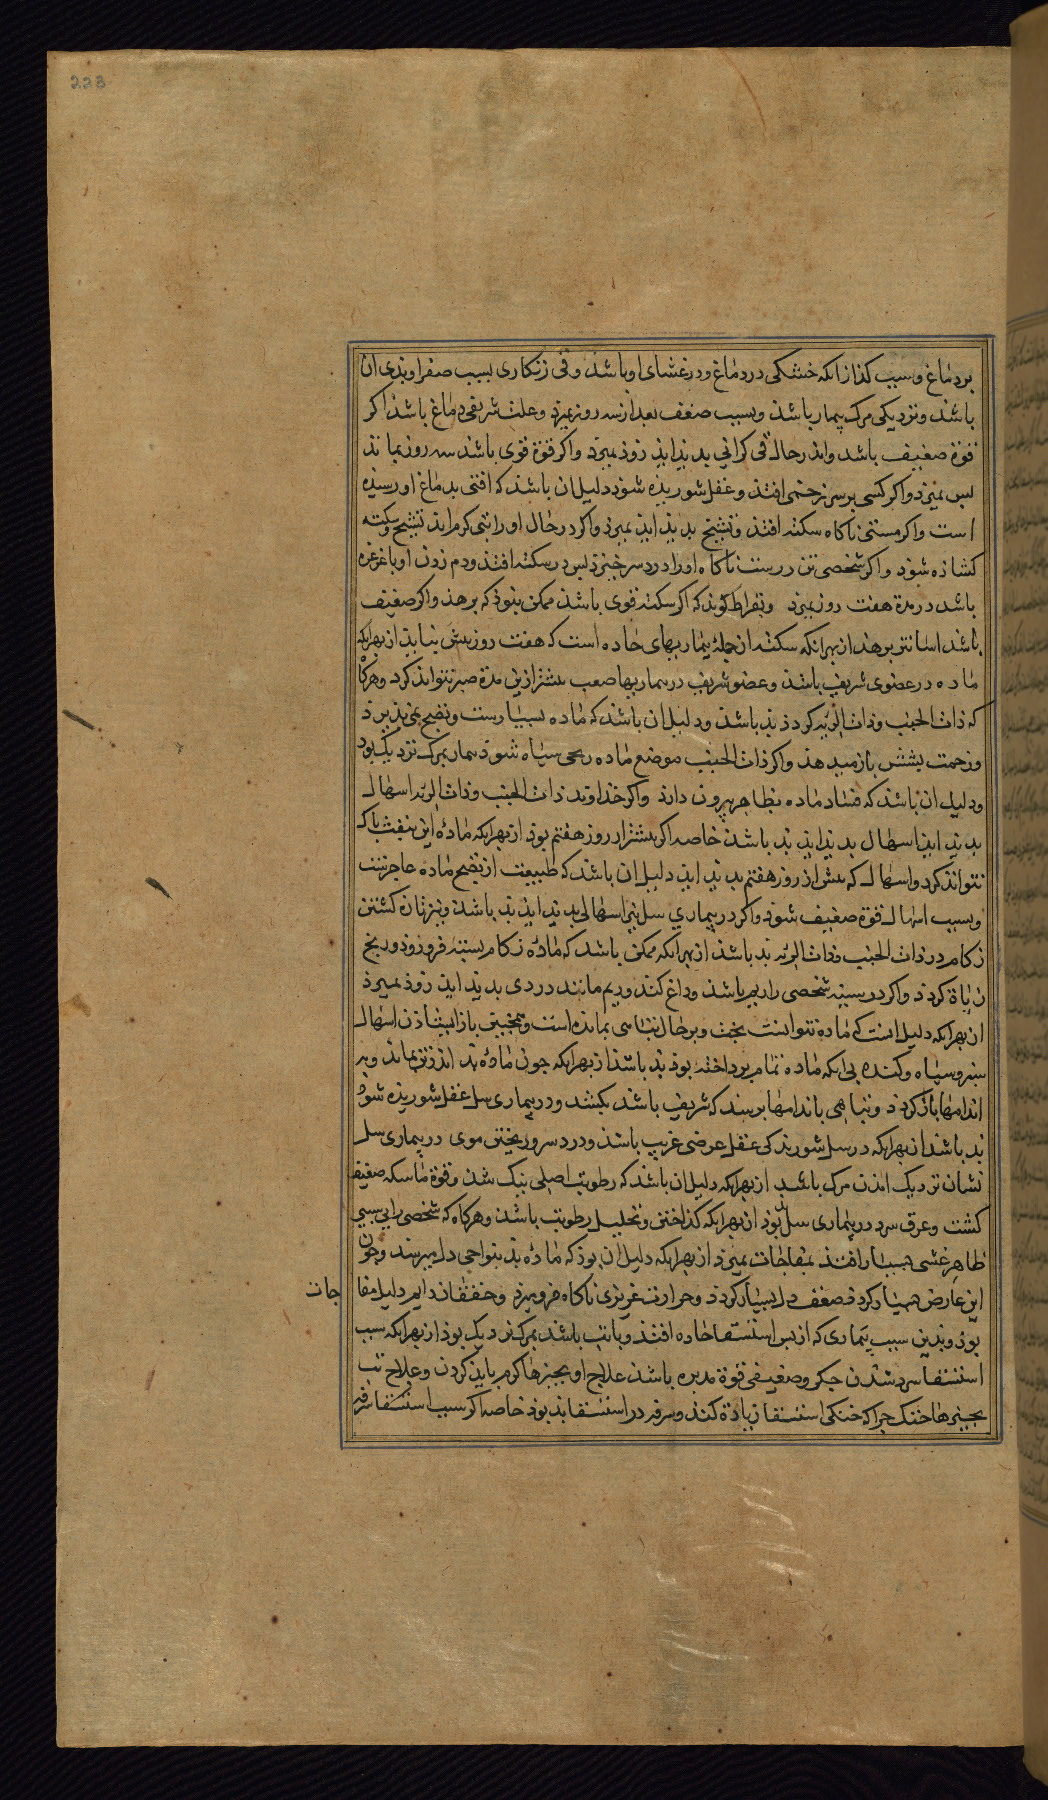 223
بر دماغ و سبب کذازانکه خشکی در دماغ و در غشای او باشذ و قی زنکاری بسبب صفرا و بذی ان
باشذ و نزدیکی مرک بیمار باشذ و بسبب ضعف بعد از سه روز بمیرد و علت شریفی دماغ باشذ اکر
قوة ضعیف باشد و اندر حال قی کرانی بدیذ ایذ زوذ بمیرد و اکر قوة قوی باشذ سه روز بماند
بس بمیرد و اکر کسی بر سر زخمی افتذ و عقل شوریده شوذ دلیل ان باشذ که افتی بدماغ او رسیذه
است و اکر مستی ناکاه سکته افتذ و تشنج بدیذ ایذ بمیرد و اکر در حال او را تبی کرم ایذ تشنج و سکته
کشاذه شوذ و اکر شخصی تن درست ناکاه او را درد سر خیزد بس در سکته افتذ و دم زدن او با غرغره
باشد در مدة هفت روز بمیرد و بقراط کوید که اکر سکته قوی باشذ ممکن نبوذ که برهذ و اکر ضعیف
باشذ اسانتر برهذ از بهر انکه سکته از جملۀ بیماریهای حاده است که هفت روز بیش نبایذ از بهر انکه
ماده در عضوی شریف باشذ و عضو شریف در بیماریها صعب بیشتر ازین مدة صبر نتواند کرد و هرکاه
که ذات الجنب و ذات الریه کردذ بذ باشذ و دلیل ان باشذ که ماده بسیارست و نضج نمی بذیرد
و زحمت بشش باز میدهذ و اکر ذات الجنب موضع ماده ریحی سیاه شوذ بیمار بمرک نزدیک بود
و دلیل ان باشذ که فساد ماده بظاهر بیرون دارذ و اکر خداوند ذات الجنب و ذات الریه اسهال
بدیذ ایذ اسهال بدیذ ایذ بذ باشذ خاصه اکر بیشتر از روز هفتم بوذ از بهر انکه مادۀ این بنفث باک
نتواند کرد و اسهال که بیش از روز هفتم بدیذ ایذ دلیل ان باشذ که طبیعت از نضج ماده عاجزست
و بسبب اسهال قوة ضعیف شوذ و اکر در بیماری سل نیز اسهالی بدیذ ایذ بذ باشذ و نیز نشان کشتن
زکام در ذات الجنب و ذات الریه بذ باشذ از بهر انکه ممکن باشد که مادۀ زکام بسینه فرو روذ و رنج
زیاة کردذ و اکر در سینه شخصی را ریم باشذ و داغ کنند و ریم مانند دردی بدیذ ایذ زوذ بمیرد
از بهر انکه دلیل انست که ماده نتوانست بخت و بر حال تباهی بمانده است و همجنین باز ایستاذن اسهال
سبز و سیاه و کنده بی انکه ماده تمام برداخته بوذ بذ باشذ از بهر انکه جون مادۀ بد اندر تن بماند و بر
اندامها باز کردد و تباهی باندامها برسد که شریف باشد بکشد و در بیماری سل عقل شوریذه شوذ
بذ باشذ از بهر انکه در سل شوریدکی عقل عرضی غریب باشذ و درد سر و ریختن موی در بیماری سل
نشان نزدیک امذن مرک باشد از بهر انکه دلیل ان باشذ که رطوبت اصلی نیک شذ و قوة ماسکه ضعیف
کشت و عرق سرد در بیماری سل بوذ از بهر انکه کذاختن و تحلیل رطوبت باشذ و هرکاه که شخصی را بی سببی
ظاهر غشی بسیار افتذ بمفاجات بمیرد از بهر انکه دلیل ان بوذ که مادۀ بذ بنواحی دل میرسد و جون
این عارض بسیار کردد ضعف دل بسیار کردد و حرارت غریزی ناکاه فرو میرد و خفقان دایم دلیل مفا
جات
بوذ و بدین سبب بیماری که از بس استسقا حاده افتذ و با تب باشذ بمرک نزدیک بوذ از بهر انکه سبب
استسقا سرد شذن جکر و ضعیفی قوة مدبره باشذ علاج او بجیزها کرم بایذ کردن و علاج تب
بجیزها خنک جرا که خنکی استسقا زیادة کنذ و سرفه در استسقا بذ بوذ خاصه اکر سبب استسقا سرفه